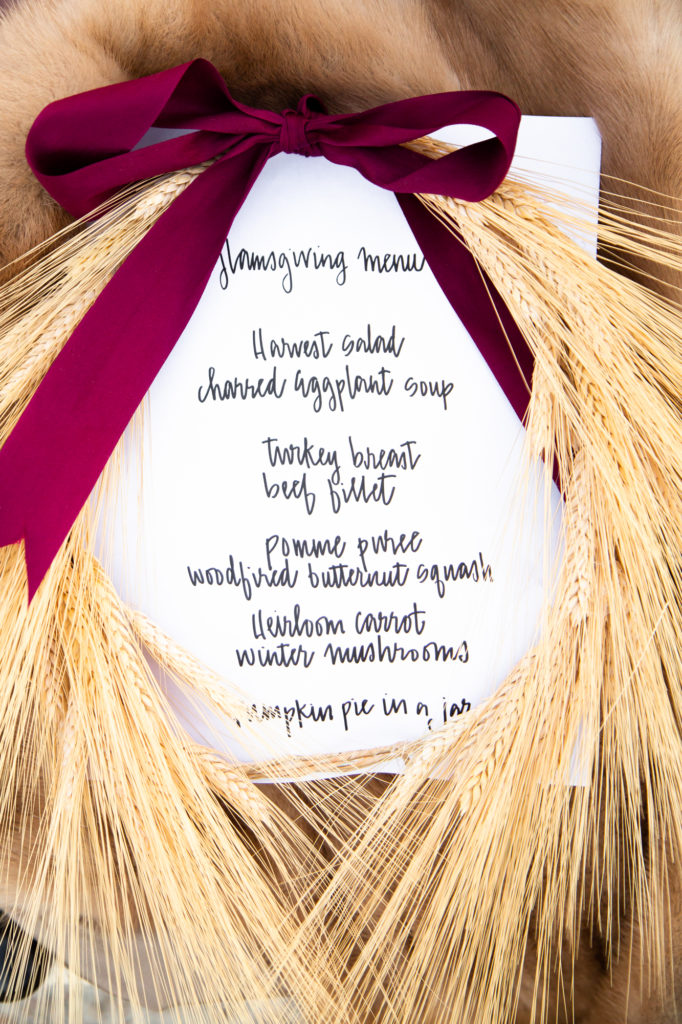 Hamsgiving menu
Harvest salad
charred Eggplant soup
turkey breast
beef fillet
pomme puree
woodfired butternut squash
Heirloom carrot
winter mushrooms
pumpkin pie in a jar